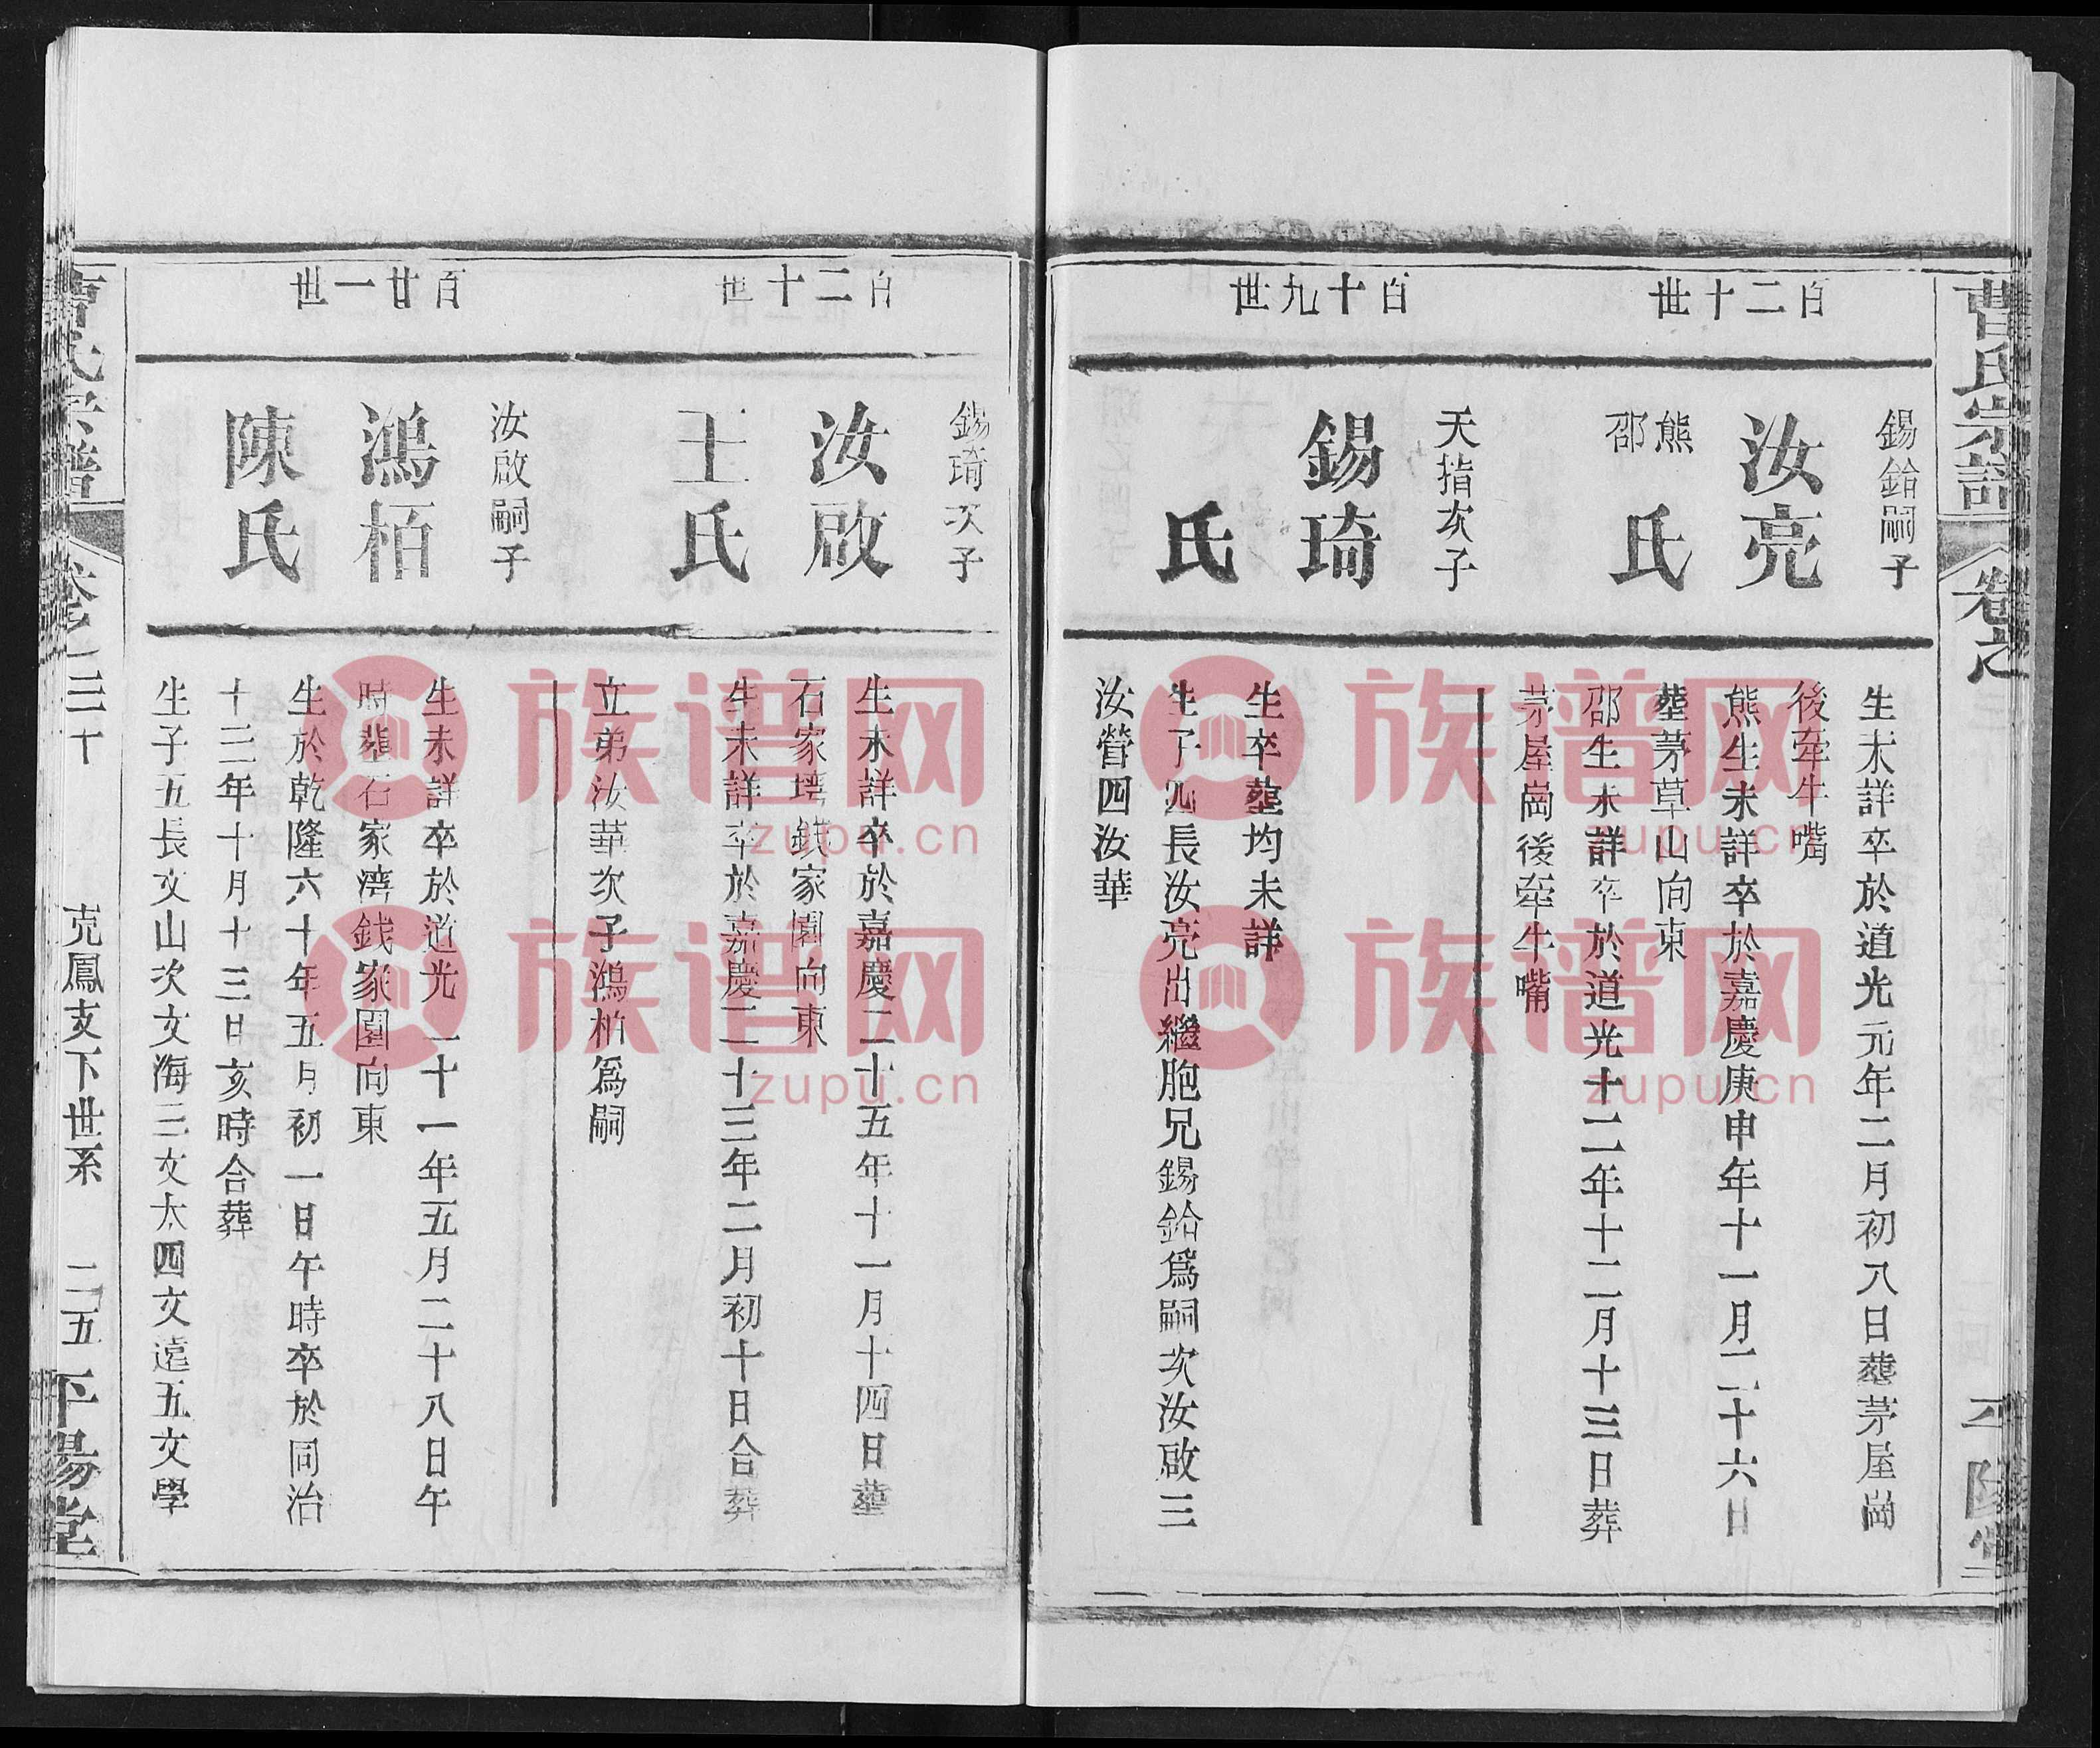 曹氏宗譜
卷之
平陽堂
百二十世
錫鉿嗣子
汝亮
熊
邵
氏
生未詳卒於道光元年二月初八日塟茅屋崗
後牽牛嘴
熊生未詳卒於嘉慶庚申年十一月二十六日
塟茅草山向東
邵生未詳卒於道光十二年十二月十三日葬
茅屋崗後牽牛嘴
百十九世
天指次子
錫琦
氏
生卒塟均未詳
生子四長汝亮出繼胞兄錫鉿爲嗣次汝啟三
汝營四汝華
百二十世
錫琦次子
汝啟
王氏
生未詳卒於嘉慶二十五年十一月十四日塟
石家塆錢家園向東
生未詳卒於嘉慶二十三年二月初十日合葬
立弟汝華次子鴻栢爲嗣
百廿一世
汝啟嗣子
鴻栢
陳氏
生未詳卒於道光二十一年五月二十八日午
時葬石家灣錢家園向東
生於乾隆六十年五月初一日午時卒於同治
十二年十月十三日亥時合葬
生子五長文山次文海三文太四文遠五文學
曹氏宗譜
卷之三十
克鳳支下世系
二五
平陽堂
族谱网
zupu.cn
族谱网
zupu.cn
族谱网
zupu.cn
族谱网
zupu.cn